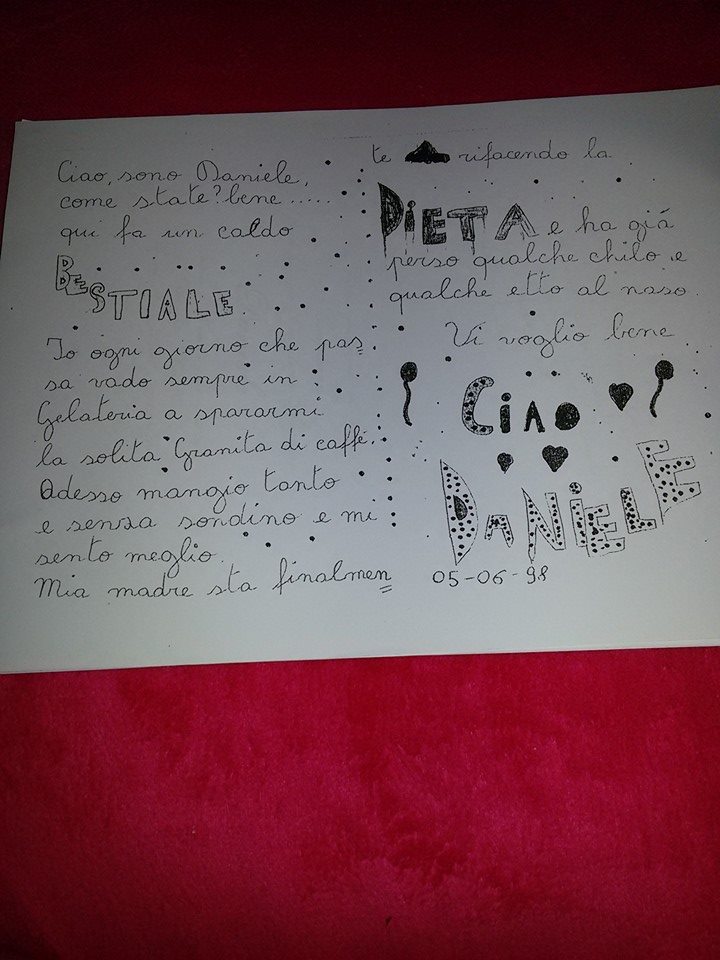 Ciao, sono Daniele,
come state? bene .....
qui fa un caldo
BESTIALE
Io ogni giorno che pas=
sa vado sempre in
Gelateria a spararmi
la solita Granita di caffé.
Adesso mangio tanto
e senza sondino e mi
sento meglio.
Mia madre sta finalmen=
te rifacendo la
DIETA e ha giá
perso qualche chilo e
qualche etto al naso.
Vi voglio bene
Ciao
DANiELE
05-06-98